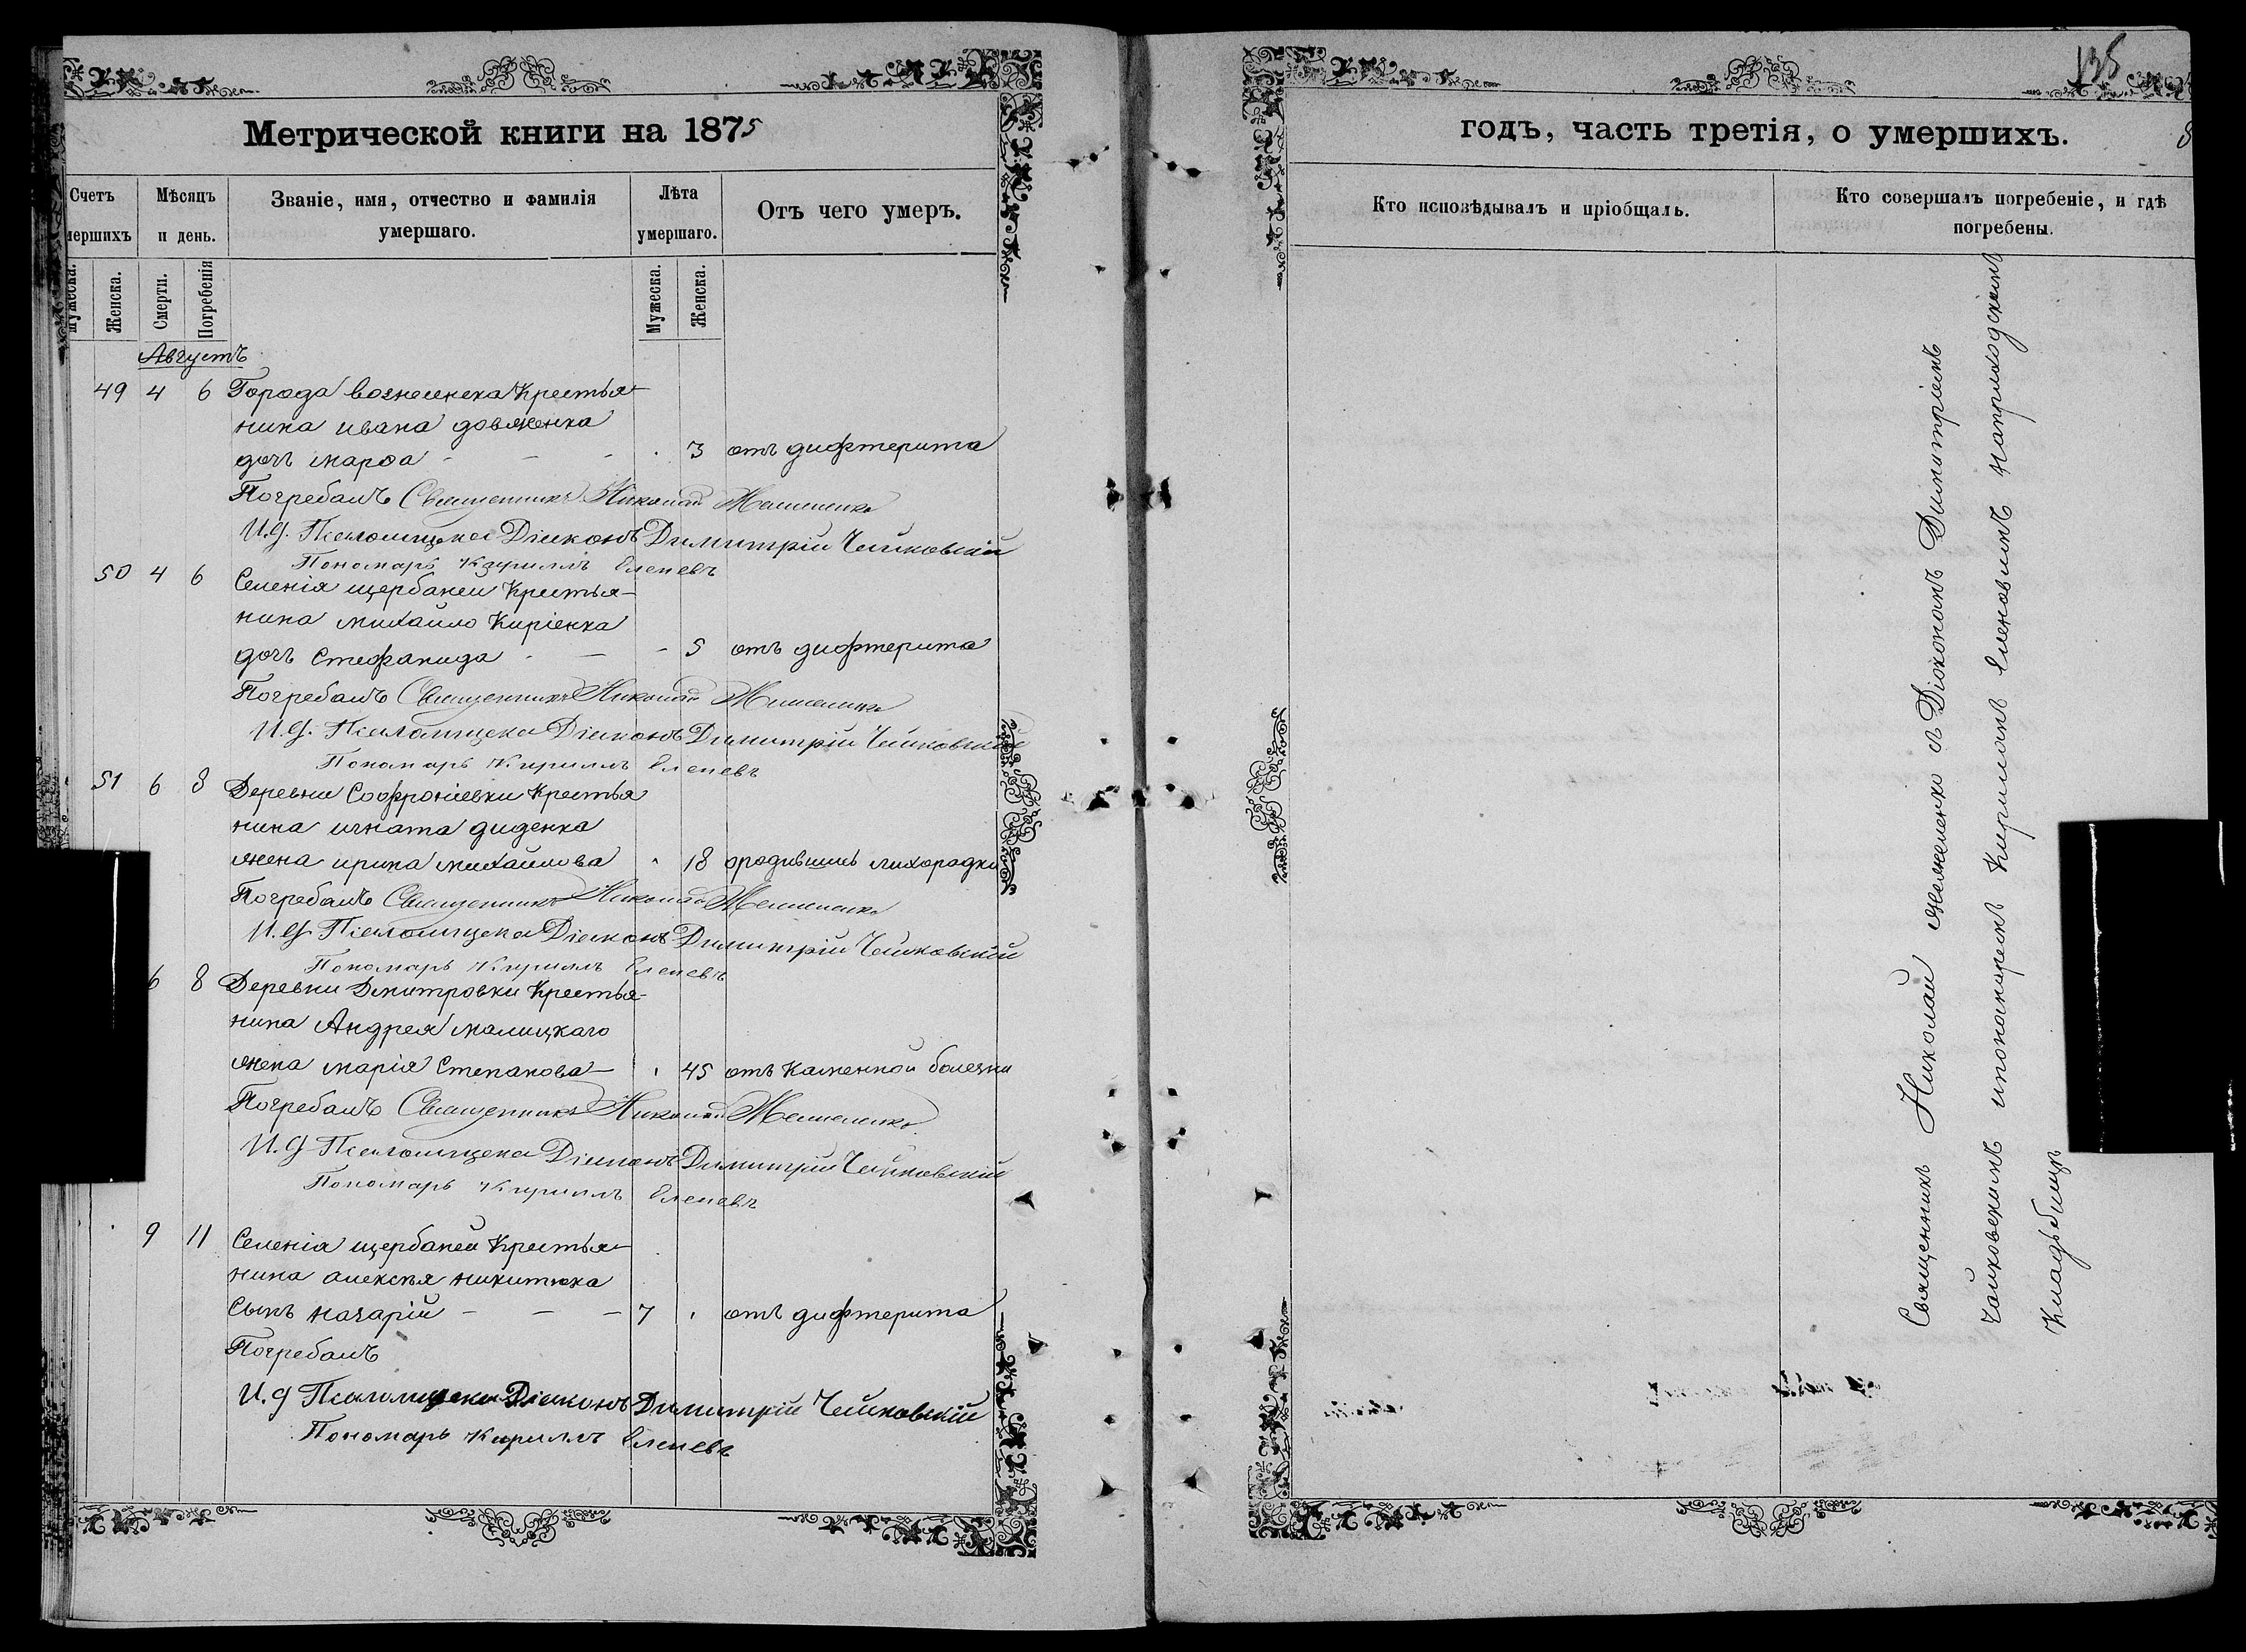 135
Метрической книги на 1875
годъ, часть третія, о умершихъ.
Счетъ
мершихъ
Мѣсяцъ
и день.
Званіе, имя, отчество и фамилія
умершаго.
Лѣта
умершаго.
Отъ чего умеръ.
Кто исповѣдывалъ и пріобщалъ.
Кто совершалъ погребеніе, и гдѣ
погребены.
Мужеска.
Женска.
Смерти.
Погребенія
Мужеска.
Женска.
Августъ
49 4 6 Города вознесенска Крестья-
нина ивана довженка
дочь марѳа - - - 3 отъ дифтерита
Погребалъ Священникъ Николай
И.д. Псаломщика Діаконъ Димитрій Чайковскій
Пономарь Кириллъ Еленевъ
50 4 6 Селенія щербаней Крестья-
нина михайло Киріенка
дочь Стефанида - - - 5 отъ дифтерита
Погребалъ Священникъ Николай
И.д. Псаломщика Діаконъ Димитрій Чайковскій
Пономарь Кириллъ Еленевъ
51 6 8 Деревни Софроніевки Крестья
нина игната диденка
жена ирина михаилова 18 ородившись лихорадки
Погребалъ Священникъ Николай
И.д. Псаломщика Діаконъ Димитрій Чайковскій
Пономарь Кириллъ Еленевъ
6 8 Деревни Дмитровки Крестья-
нина Андрея малицкаго
жена марія Степанова - 45 отъ каменной болезни
Погребалъ Священникъ Николай
И.д. Псаломщика Діаконъ Димитрій Чайковскій
Пономарь Кириллъ Еленевъ
9 11 Селенія щербаней Крестья-
нина алексея никитюка
Сынъ назарій - - - 7 отъ дифтерита
Погребалъ
И.д Псаломщика Діаконъ Димитрій Чайковскій
Пономарь Кириллъ Еленевъ
Священникъ Николай съ Діокономъ Димитріемъ
Чайковскимъ ипономаремъ Кириломъ Еленовимъ наприходскимъ
Кладьбищѣ